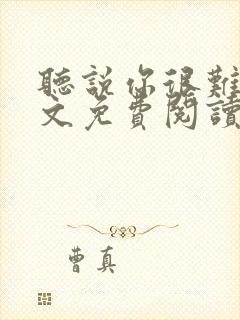 聽說你很難
文免費閱讀
曹真